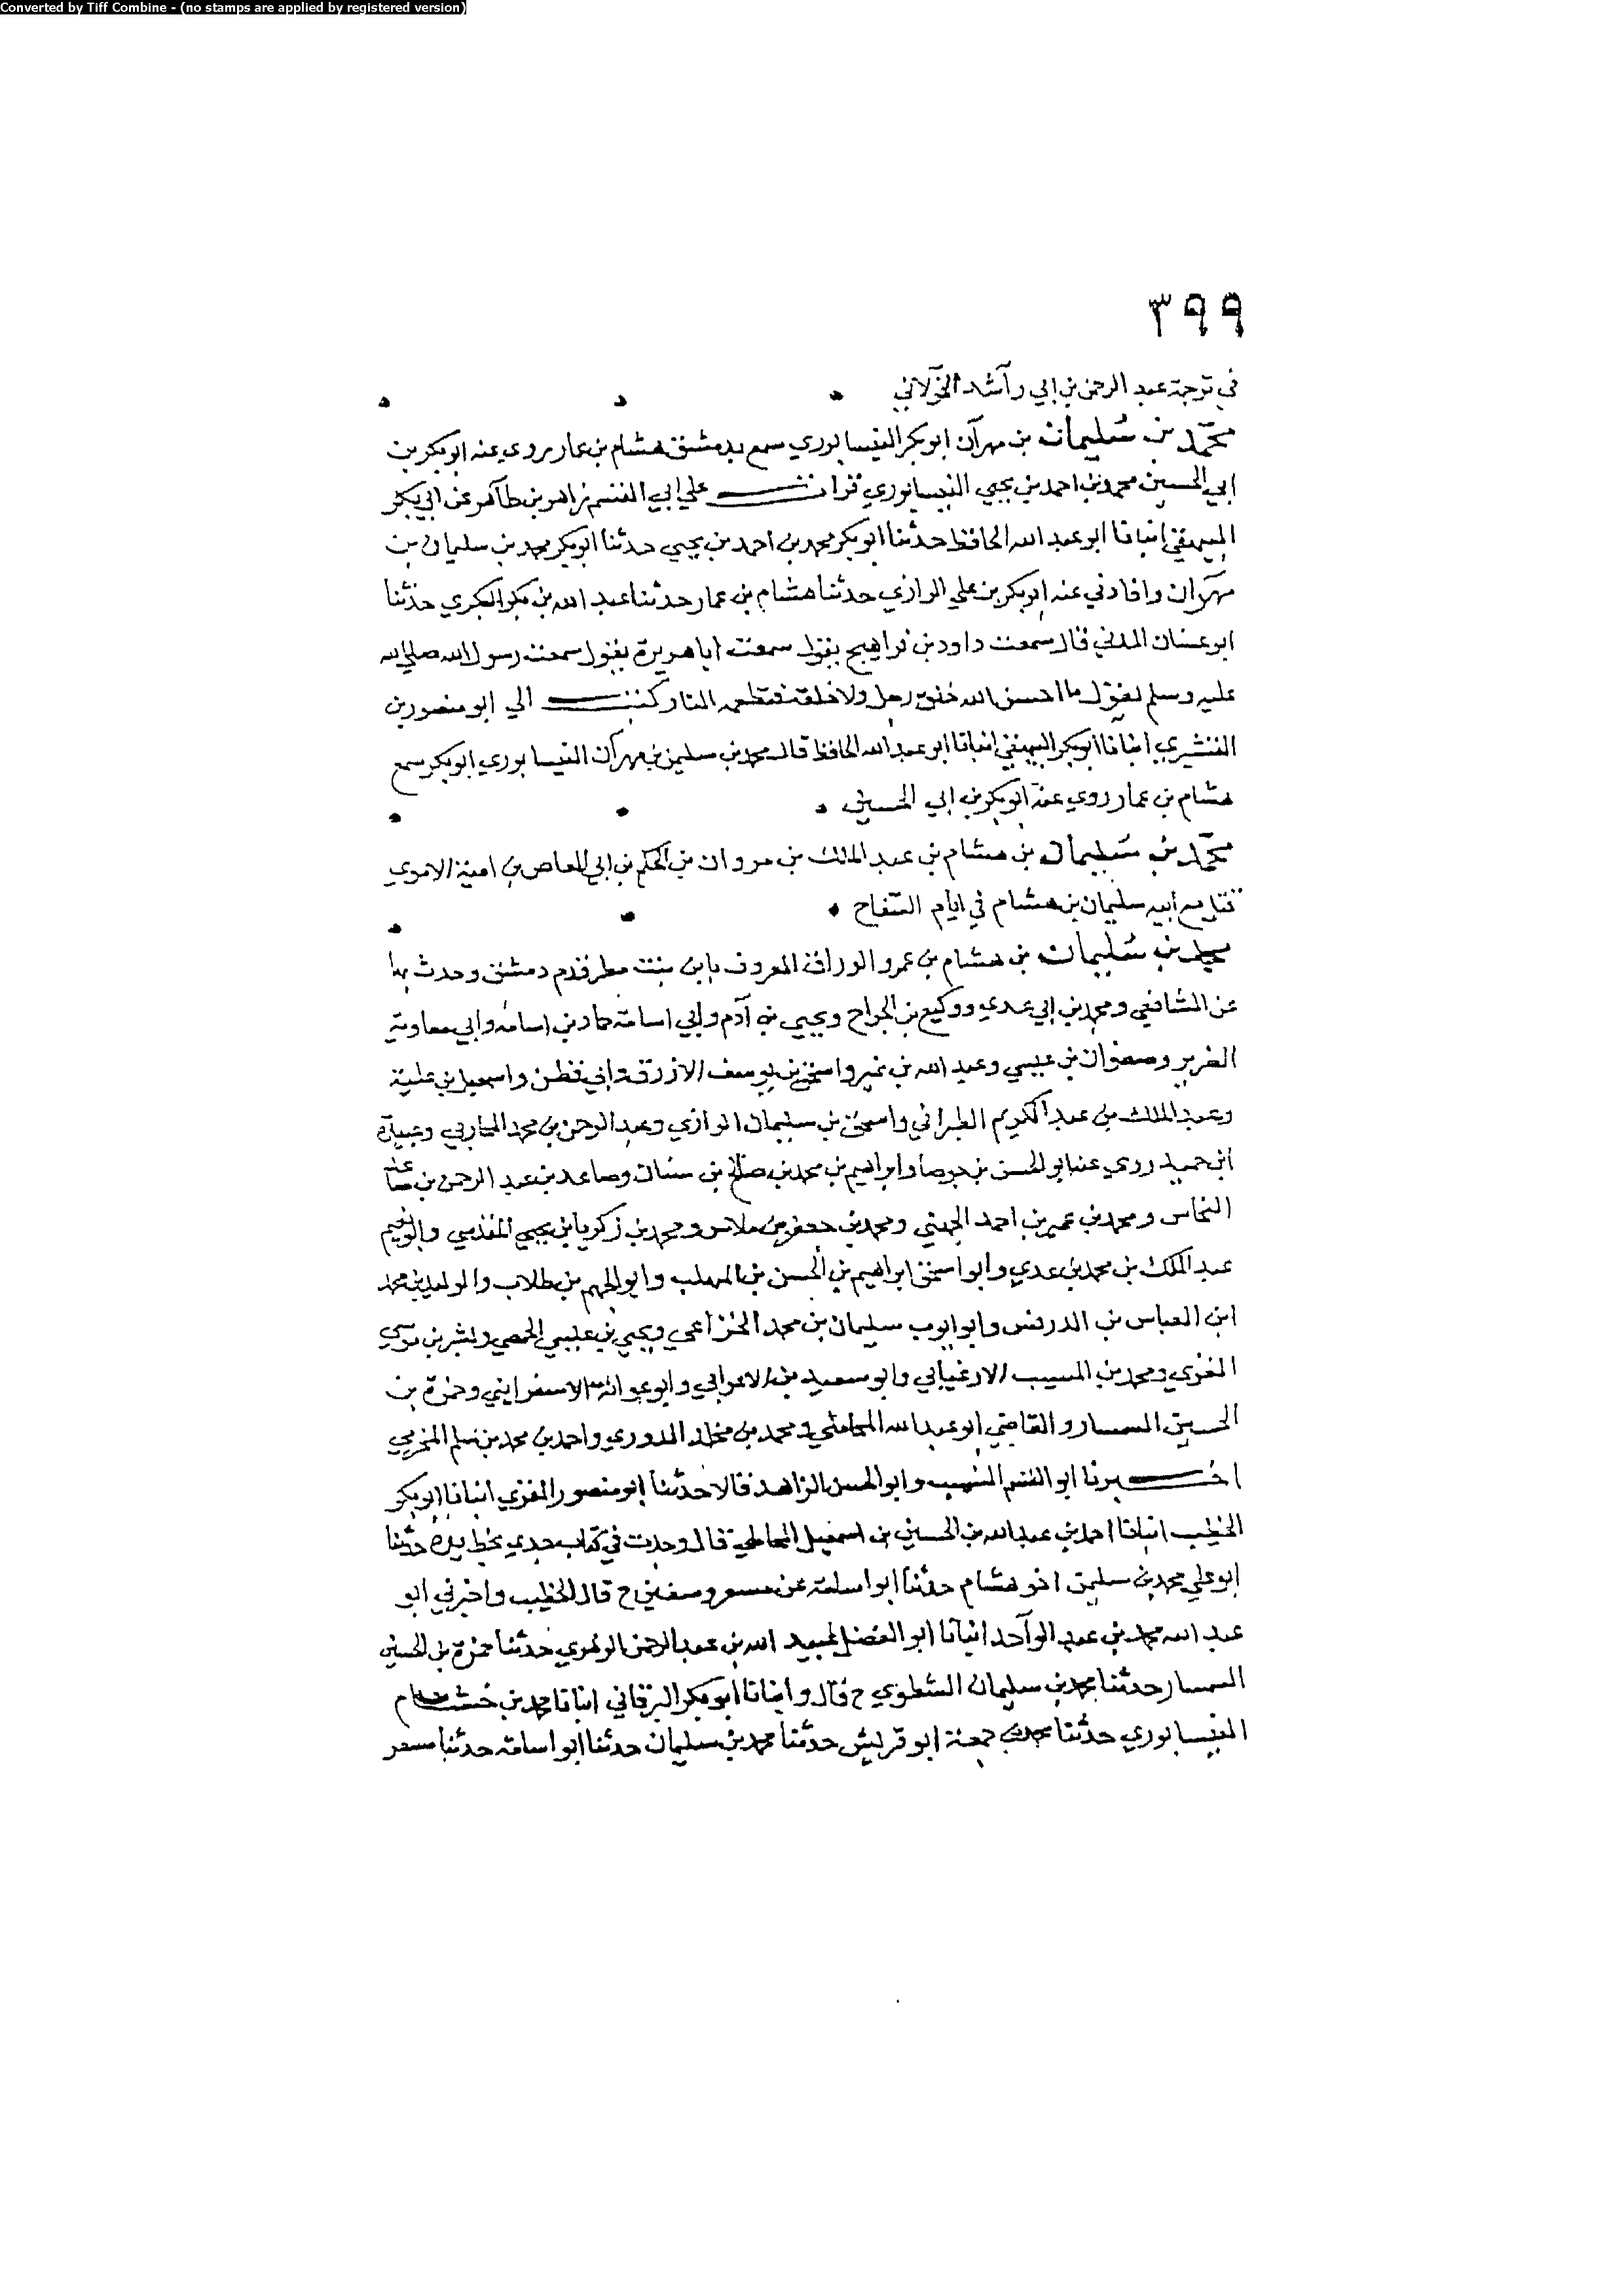 Converted by Tiff Combine - (no stamps are applied by registered version)
٣٩٩
في ترجمة عبد الرحمن بن ابي راشد الخولاني
محمد بن سليمان بن مهران ابو بكر النيسابوري سمع بدمشق هشام بن عمار روي عنه ابو بكر بن
ابي الحسين محمد بن احمد بن يحيي النيسابوري قرات علي ابي القسم زاهر بن طاهر عن ابي بكر
البيهقي انبانا ابو عبد الله الحافظ حدثنا ابو بكر محمد بن احمد بن يحيي حدثنا ابو بكر محمد بن سليمان بن
مهران وافادني عنه ابو بكر بن علي الرازي حدثنا هشام بن عمار حدثنا عبد الله بن بكر البكري حدثنا
ابو غسان المدني قال سمعت داود بن فراهيج يقول سمعت ابا هريرة يقول سمعت رسول الله صلي الله
عليه وسلم يقول ما احسن الله خلق رجل ولا خلقه فتطعمه النار كتب الي ابو منصور بن
القشيري انبانا ابو بكر البيهقي انبانا ابو عبد الله الحافظ قال محمد بن سليمن بن مهران النيسابوري ابو بكر سمع
هشام بن عمار روي عنه ابو بكر بن ابي الحسين
محمد بن سليمان بن هشام بن عبد الملك بن مروان بن الحكم بن ابي العاص بن امية الاموي
قتل مع ابيه سليمان بن هشام في ايام السفاح
محمد بن سليمان بن هشام بن عمرو الوراق المعروف بابن بنت مطر قدم دمشق وحدث بها
عن الشافعي ومحمد بن ابي عدي ووكيع بن الجراح ويحيي بن آدم وابي اسامة حماد بن اسامة وابي معاوية
الضرير وصفوان بن عيسي وعبد الله بن نمير واسحق بن يوسف الازرق وابي قطن واسمعيل بن علية
وعبد الملك بن عبد الكريم الطبراني واسحق بن سليمان الرازي وعبد الرحمن بن محمد المحاربي وعبيدة
ابن حميد روي عنه ابو الحسن بن جوصا وابراهيم بن محمد بن صالح بن سنان وصاعد بن عبد الرحمن بن
النحاس ومحمد بن عمير بن احمد الجهني ومحمد بن جعفر بن ملاس ومحمد بن زكريا بن يحيي المقدسي وابو نعيم
عبد الملك بن محمد بن عدي وابو اسحق ابراهيم بن الحسن بن المهلب وابو الجهم بن طلاب والوليد بن محمد
ابن العباس بن الدرفس وابو ايوب سليمان بن محمد الخزاعي ويحيي بن عيسي الحمصي وبشر بن موسي
الغزي ومحمد بن المسيب الارغياني وابو سعيد بن الاعرابي وابو عوانة الاسفرايني وحمزة بن
الحسين السمسار والقاضي ابو عبد الله المحاملي ومحمد بن مخلد الدوري واحمد بن محمد بن سلم المخرمي
اخبرنا ابو القسم النسيب وابو الحسن الزاهد قالا حدثنا ابو منصور المقري انبانا ابو بكر
الخطيب انبانا احمد بن عبد الله بن الحسين بن اسمعيل المحاملي قال وجدت في كتاب جدي بخط يده حدثنا
ابو علي محمد بن سليمن اخو هشام حدثنا ابو اسامة عن مسعر وسفين ح قال الخطيب واخبرني ابو
عبد الله محمد بن عبد الواحد انبانا ابو الفضل عبيد الله بن عبد الرحمن الزهري حدثنا حمزة بن الحسين
السمسار حدثنا محمد بن سليمان الشطوي ح قال وانبانا ابو بكر البرقاني انبانا محمد بن خشنام
النيسابوري حدثنا محمد بن جمعة ابو قريش حدثنا محمد بن سليمان حدثنا ابو اسامة حدثنا مسعر